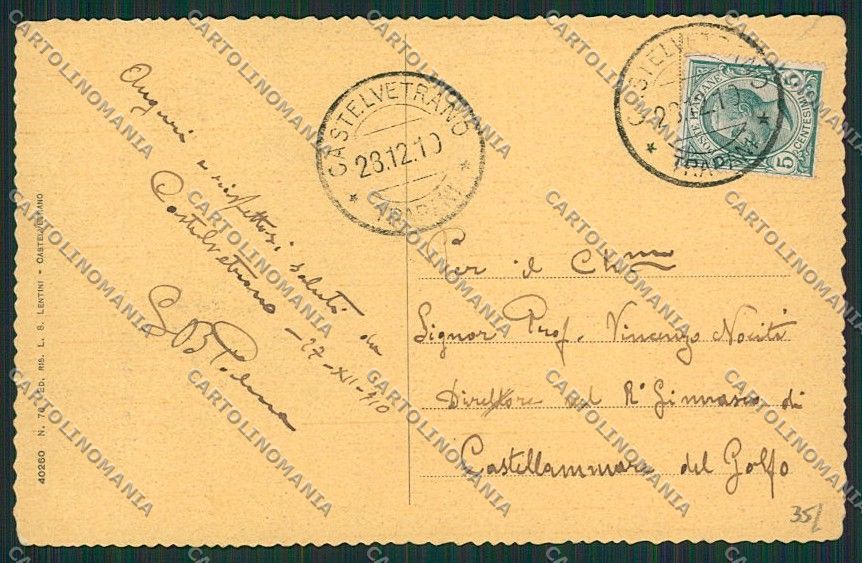 Auguri e rispettosi saluti da
Castelvetrano - 27-XII-910
CASTELVETRANO
28.12.10
* TRAPANI *
CASTELVETRANO
28.12.10
* TRAPANI *
POSTE ITALIANE
CENTESIMI
5
Per il Ch.mo
Signor Prof. Vincenzo Nociti
Direttore del R.º Ginnasio di
Castellammare del Golfo
40260 N. 78 ED. RIS. L. S. LENTINI - CASTELVETRANO
35
CARTOLINOMANIA